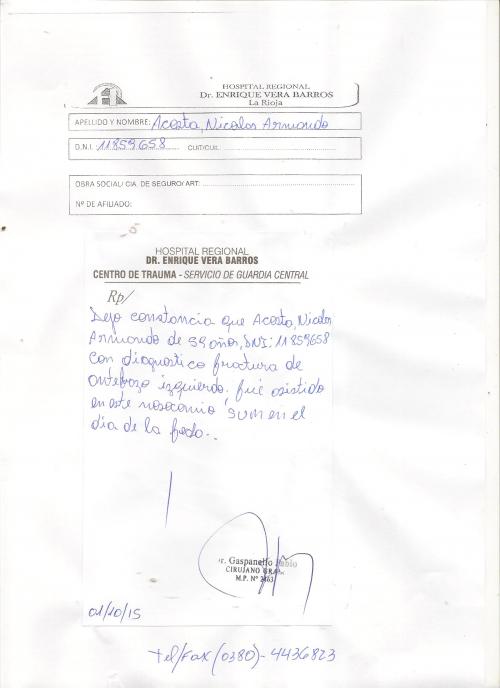 HOSPITAL REGIONAL
Dr. ENRIQUE VERA BARROS
La Rioja
APELLIDO Y NOMBRE: Acosta, Nicolas Armando
D.N.I. 11859658 CUIT/CUIL:
OBRA SOCIAL/ CIA. DE SEGURO/ ART:
Nº DE AFILIADO:
HOSPITAL REGIONAL
DR. ENRIQUE VERA BARROS
CENTRO DE TRAUMA - SERVICIO DE GUARDIA CENTRAL
Rp/
Dejo constancia que Acosta, Nicolas
Armando de 59 años, DNI: 11859658
con diagnostico fractura de
antebrazo izquierdo. fué asistido
en este nosocomio en el
dia de la fecha.
Gaspanello Fabio
CIRUJANO GRAL.
M.P. Nº
01/10/15
Tel/Fax (0380)-4436823